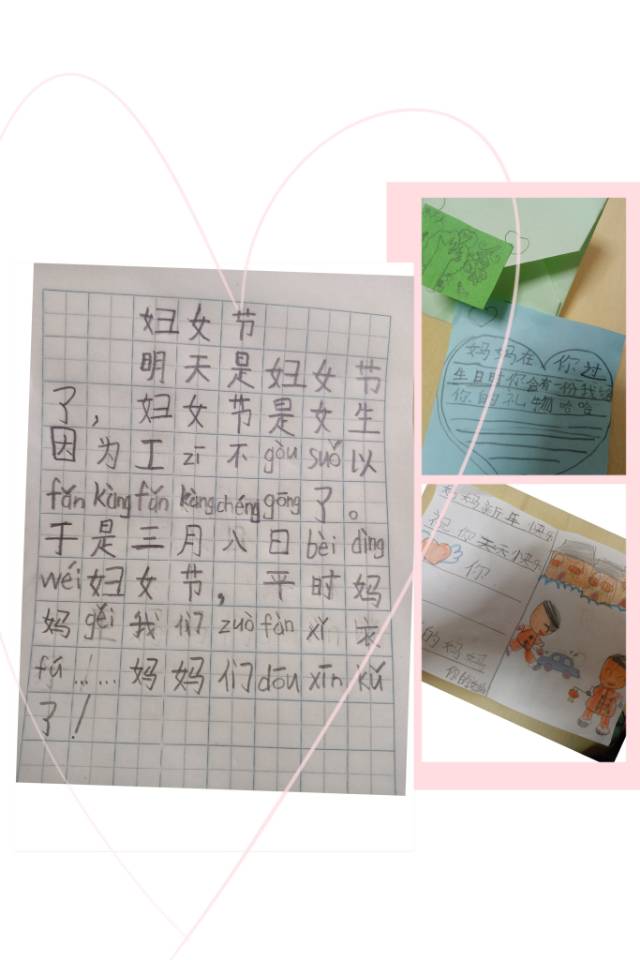 妇女节
明天是妇女节
了，妇女节是女生
因为工zī不gòu suǒ以
fǎn kàng fǎn kàng chéng gōng了。
于是三月八日bèi dìng
wéi妇女节，平时妈
妈gěi我们zuò fàn xǐ衣
fú……妈妈们dōu xīn kǔ
了！
妈妈在你过
生日时你会有一份我送
你的礼物哈哈
妈妈新年快乐
祝你天天快乐
你
的妈妈